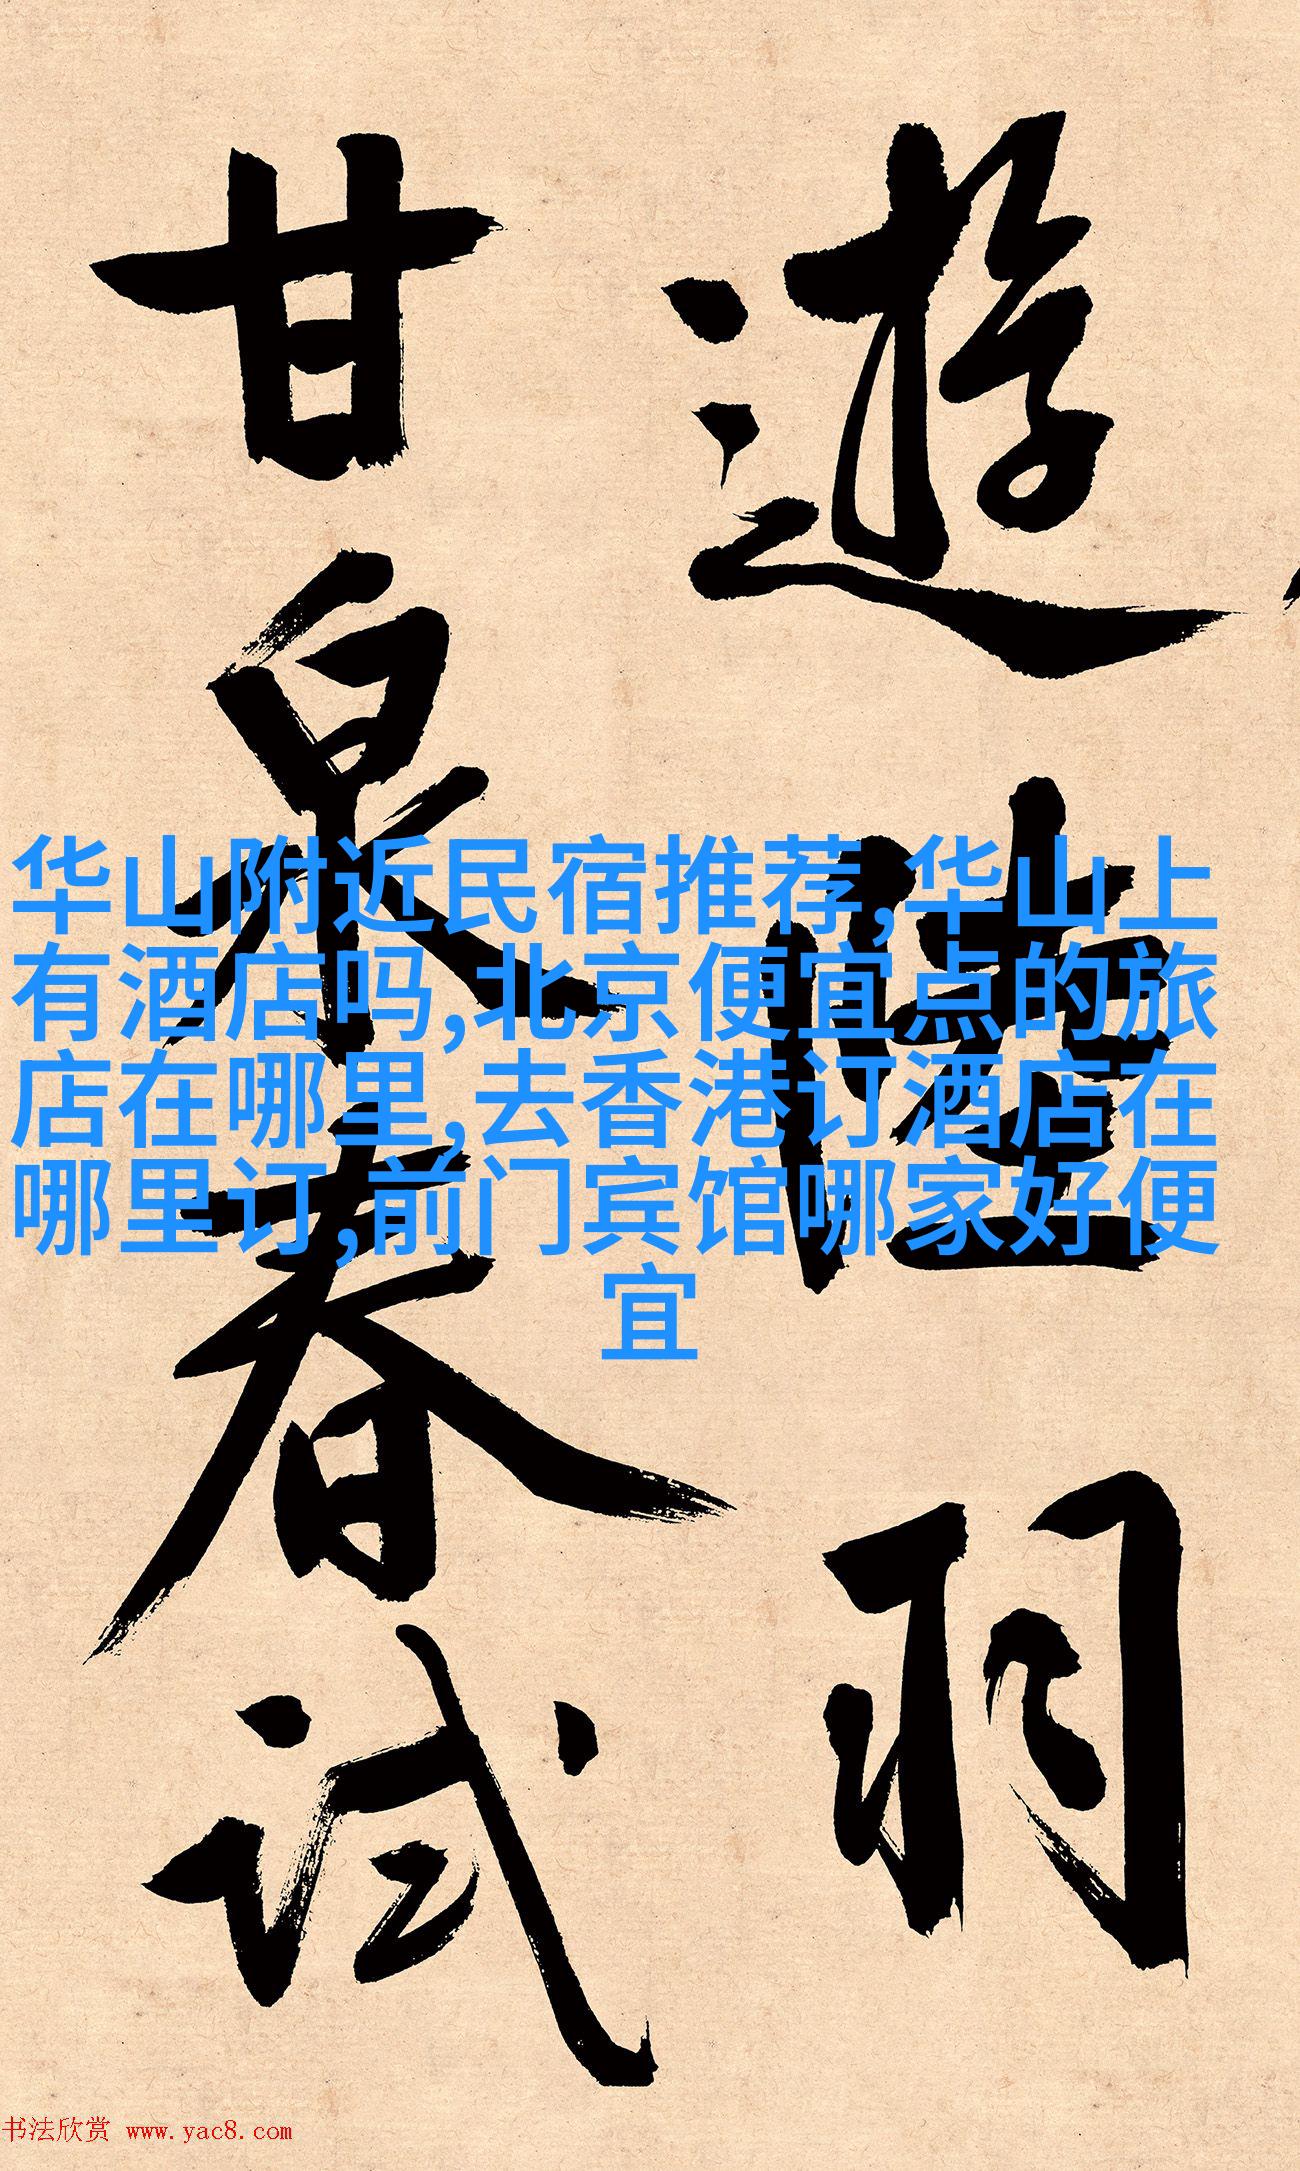 遊陸羽
甘泉春試
华山附近民宿推荐,华山上
有酒店吗,北京便宜点的旅
店在哪里,去香港订酒店在
哪里订,前门宾馆哪家好便
宜
书法欣赏 www.yac8.com